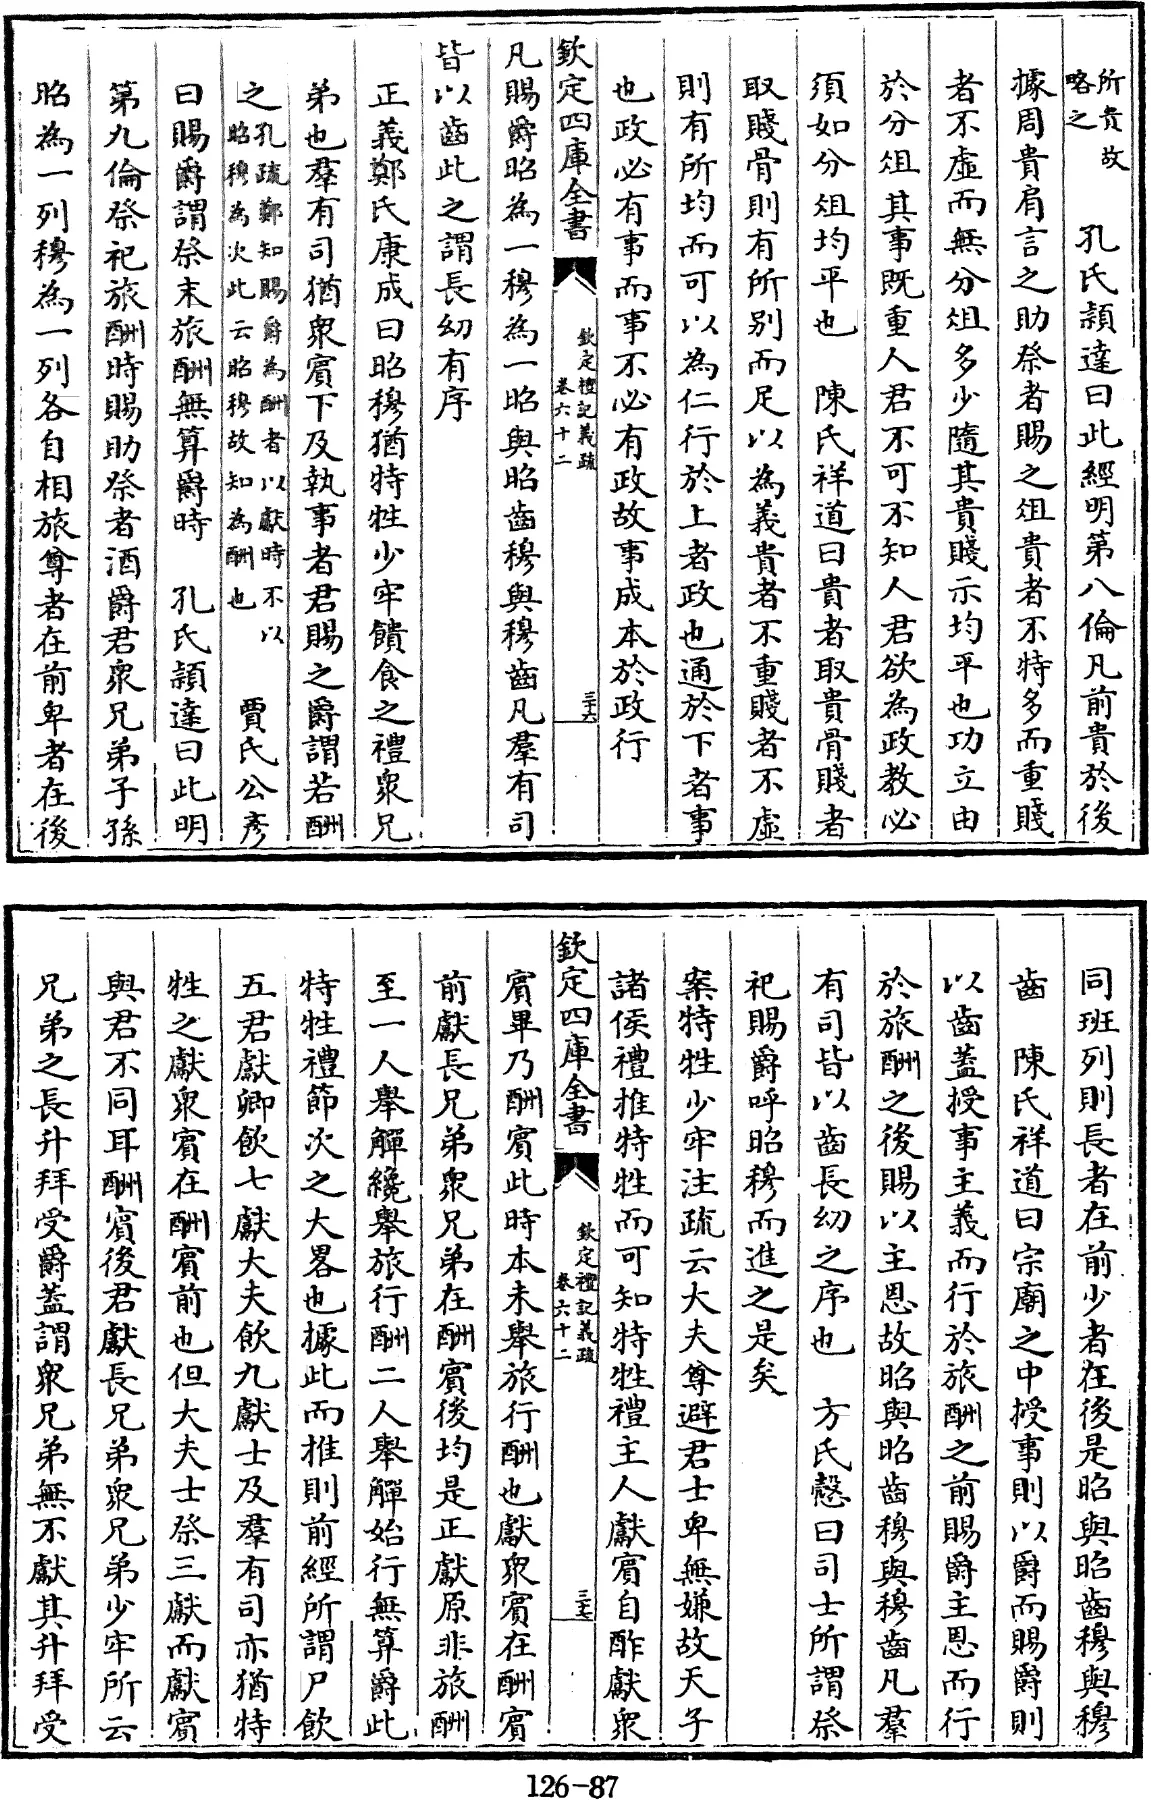 所貴故
略之
孔氏頴達曰此經明第八倫凡前貴於後
據周貴肩言之助祭者賜之俎貴者不特多而重賤
者不虛而無分俎多少隨其貴賤示均平也功立由
於分俎其事既重人君不可不知人君欲為政教必
須如分俎均平也 陳氏祥道曰貴者取貴骨賤者
取賤骨則有所别而足以為義貴者不重賤者不虛
則有所均而可以為仁行於上者政也通於下者事
也政必有事而事不必有政故事成本於政行
欽定四庫全書
欽定禮記義疏
卷六十二
三十六
凡賜爵昭為一穆為一昭與昭齒穆與穆齒凡羣有司
皆以齒此之謂長幼有序
正義鄭氏康成曰昭穆猶特牲少牢饋食之禮衆兄
弟也羣有司猶衆賓下及執事者君賜之爵謂若酬
之
孔疏鄭知賜爵為酬者以獻時不以
昭穆為次此云昭穆故知為酬也
賈氏公彥
曰賜爵謂祭末旅酬無算爵時 孔氏頴達曰此明
第九倫祭祀旅酬時賜助祭者酒爵君衆兄弟子孫
昭為一列穆為一列各自相旅尊者在前卑者在後
同班列則長者在前少者在後是昭與昭齒穆與穆
齒 陳氏祥道曰宗廟之中授事則以爵而賜爵則
以齒蓋授事主義而行於旅酬之前賜爵主恩而行
於旅酬之後賜以主恩故昭與昭齒穆與穆齒凡羣
有司皆以齒長幼之序也 方氏慤曰司士所謂祭
祀賜爵呼昭穆而進之是矣
案特牲少牢注疏云大夫尊避君士卑無嫌故天子
諸侯禮推特牲而可知特牲禮主人獻賓自酢獻衆
欽定四庫全書
欽定禮記義疏
卷六十二
三十七
賓畢乃酬賓此時本未舉旅行酬也獻衆賓在酬賓
前獻長兄弟衆兄弟在酬賓後均是正獻原非旅酬
至一人舉觶纔舉旅行酬二人舉觶始行無算爵此
特牲禮節次之大畧也據此而推則前經所謂尸飲
五君獻卿飲七獻大夫飲九獻士及羣有司亦猶特
牲之獻衆賓在酬賓前也但大夫士祭三獻而獻賓
與君不同耳酬賓後君獻長兄弟衆兄弟少牢所云
兄弟之長升拜受爵蓋謂衆兄弟無不獻其升拜受
126-87